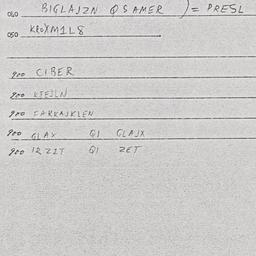 060 BIGLAJZN QSAMER )= PRESL
050 KROXM1L8
900 CIBER
900 KIEJLN
900 FARKAJKLEN
900 GLAX QI GLAJX
900 IRZZT QI ZET